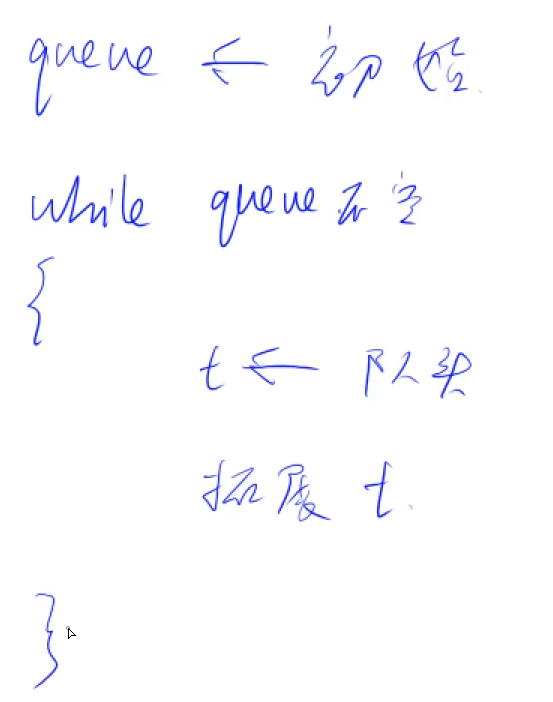 queue ← 初始
while queue不空
{
t ← 队头
拓展 t.
}